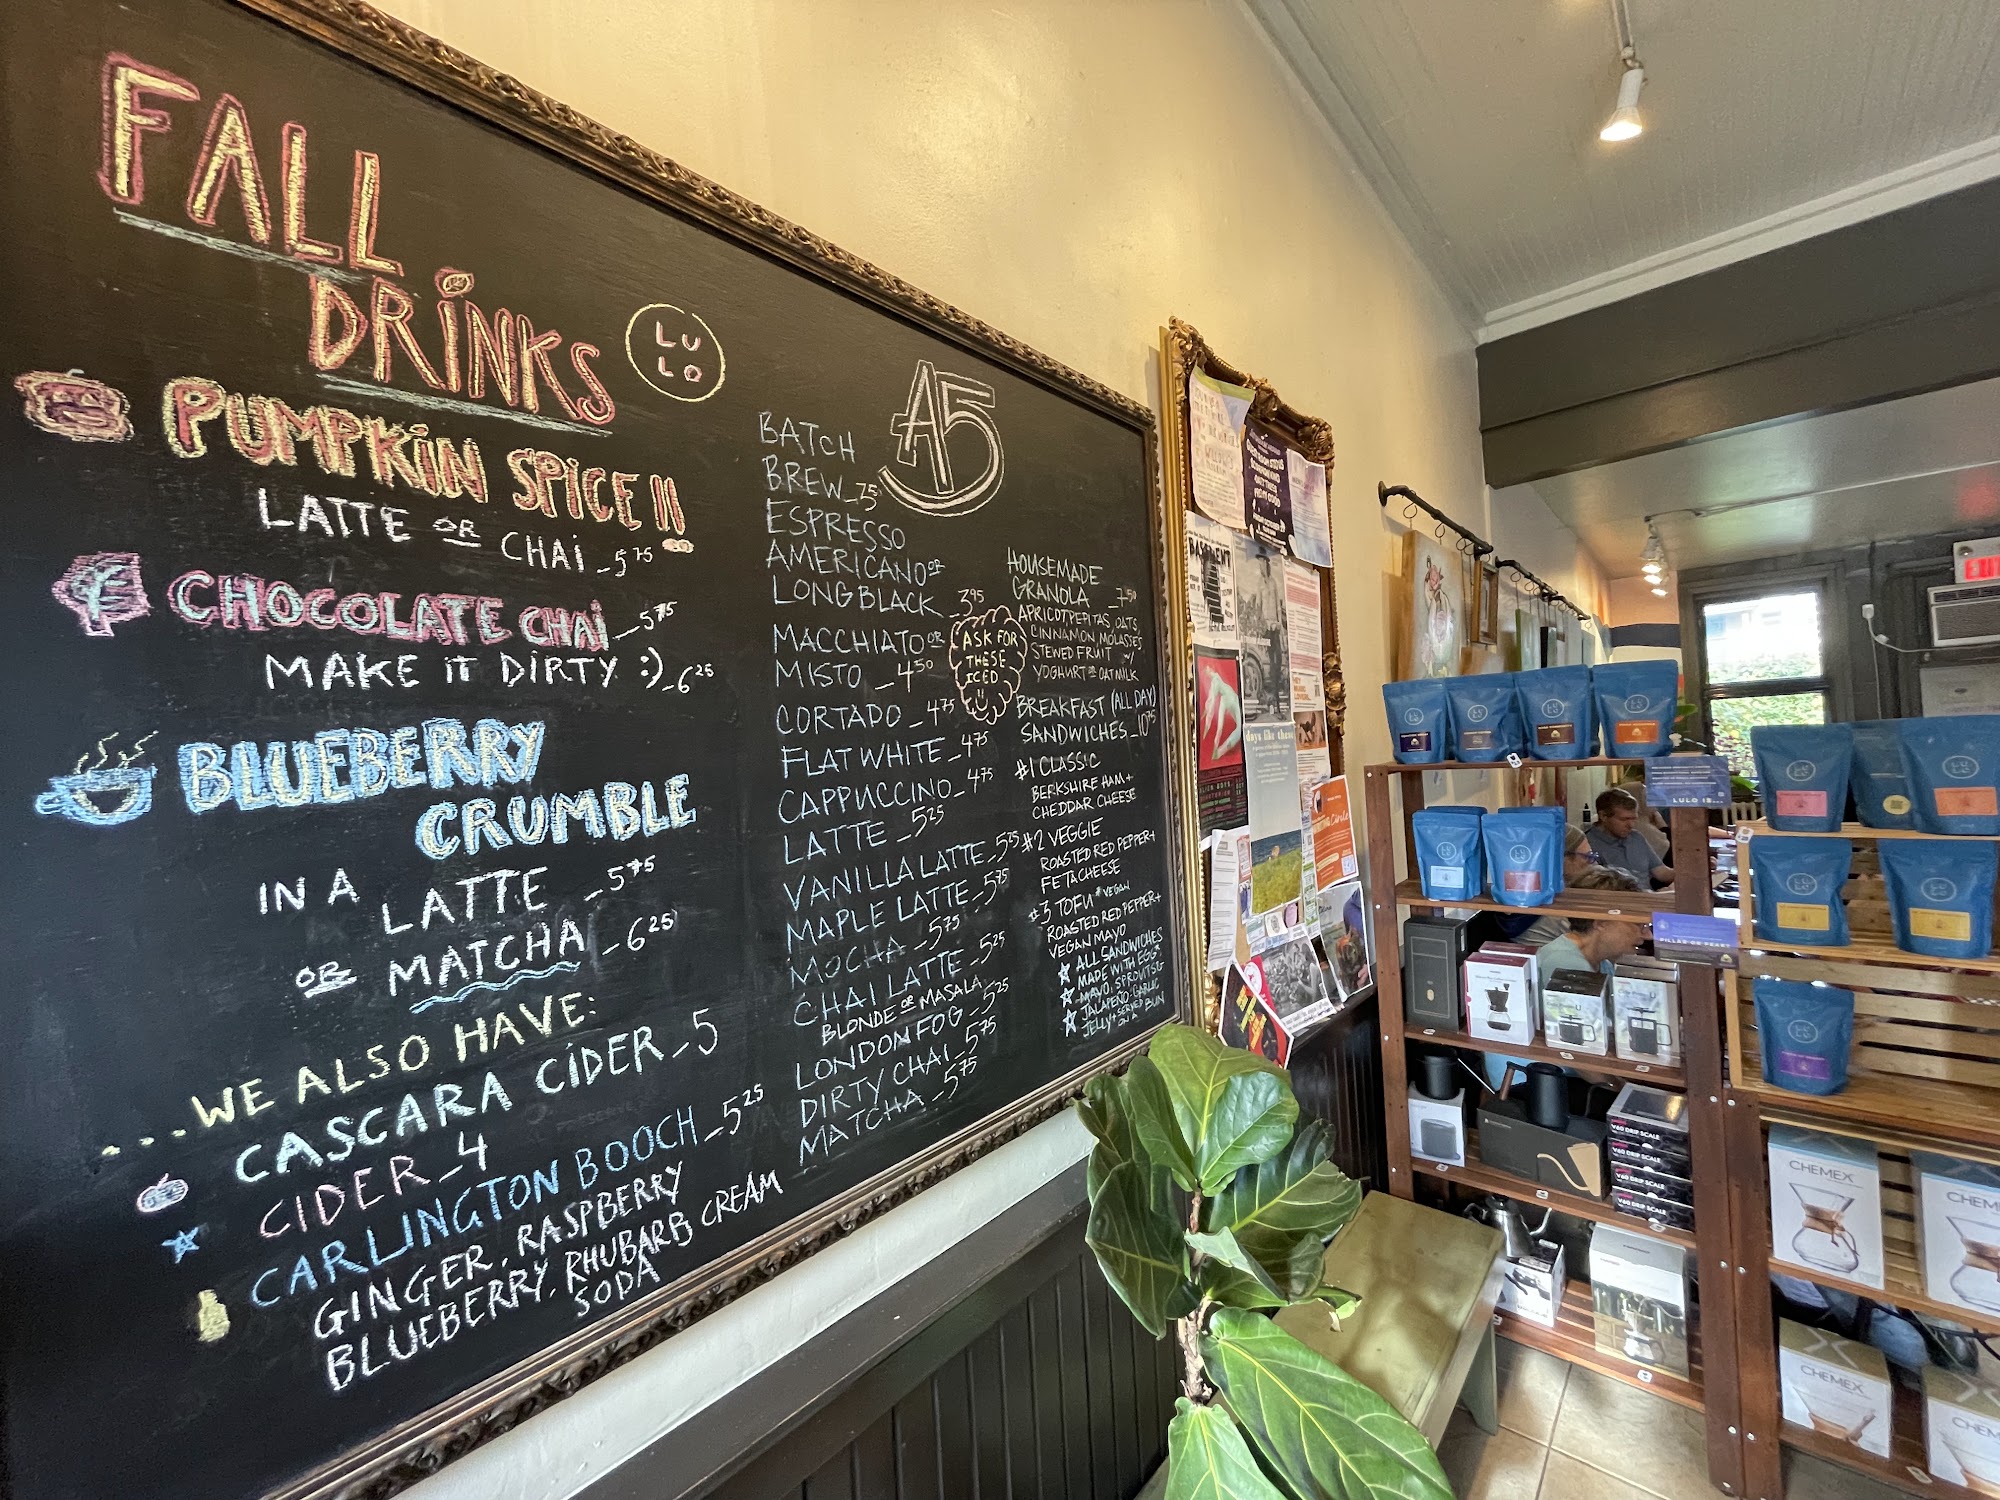 FALL
DRiNKS
LU
LO
PUMPKiN SPiCE !!
LATTE OR CHAi _ 5 75
CHOCOLATE CHAi _ 5 75
MAKE IT DIRTY :) _ 6 25
BLUEBERRY
CRUMBLE
IN A LATTE _ 5 75
OR MATCHA _ 6 25
...WE ALSO HAVE:
CASCARA CiDER _ 5
CIDER _ 4
CARLINGTON BOOCH _ 5 25
GINGER, RASPBERRY
BLUEBERRY, RHUBARB CREAM
SODA
A5
BATCH
BREW _
ESPRESSO
AMERICANO OR
LONG BLACK _ 3 95
MACCHIATO OR
MISTO _ 4 50
CORTADO _ 4 75
FLAT WHITE _ 4 75
CAPPUCCINO _ 4 75
LATTE _ 5 25
VANILLA LATTE _ 5 75
MAPLE LATTE _ 5 75
MOCHA _ 5 75
CHAI LATTE _ 5 25
BLONDE OR MASALA
LONDON FOG _ 5 25
DIRTY CHAI _ 5 75
MATCHA _ 5 75
ASK FOR
THESE
ICED
HOUSEMADE
GRANOLA _ 7 50
APRICOT, PEPITAS, OATS,
CINNAMON MOLASSES
STEWED FRUIT w/
YOGHURT OR OATMILK
BREAKFAST (ALL DAY)
SANDWICHES _ 10 75
#1 CLASSIC
BERKSHIRE HAM +
CHEDDAR CHEESE
#2 VEGGIE
ROASTED RED PEPPER +
FETA CHEESE
#3 TOFU * VEGAN
ROASTED RED PEPPER +
VEGAN MAYO
ALL SANDWICHES
MADE WITH EGG,
MAYO, SPROUTS &
JALAPEÑO GARLIC
JELLY + SERVED
ON A BUN
BASEMENT
days like these
EXIT
LULO IS...
PILLAR OF PEAKS
V60 DRIP SCALE
V60 DRIP SCALE
V60 DRIP SCALE
V60 DRIP SCALE
CHEMEX
CHEMEX
CHEMEX
CHEMEX